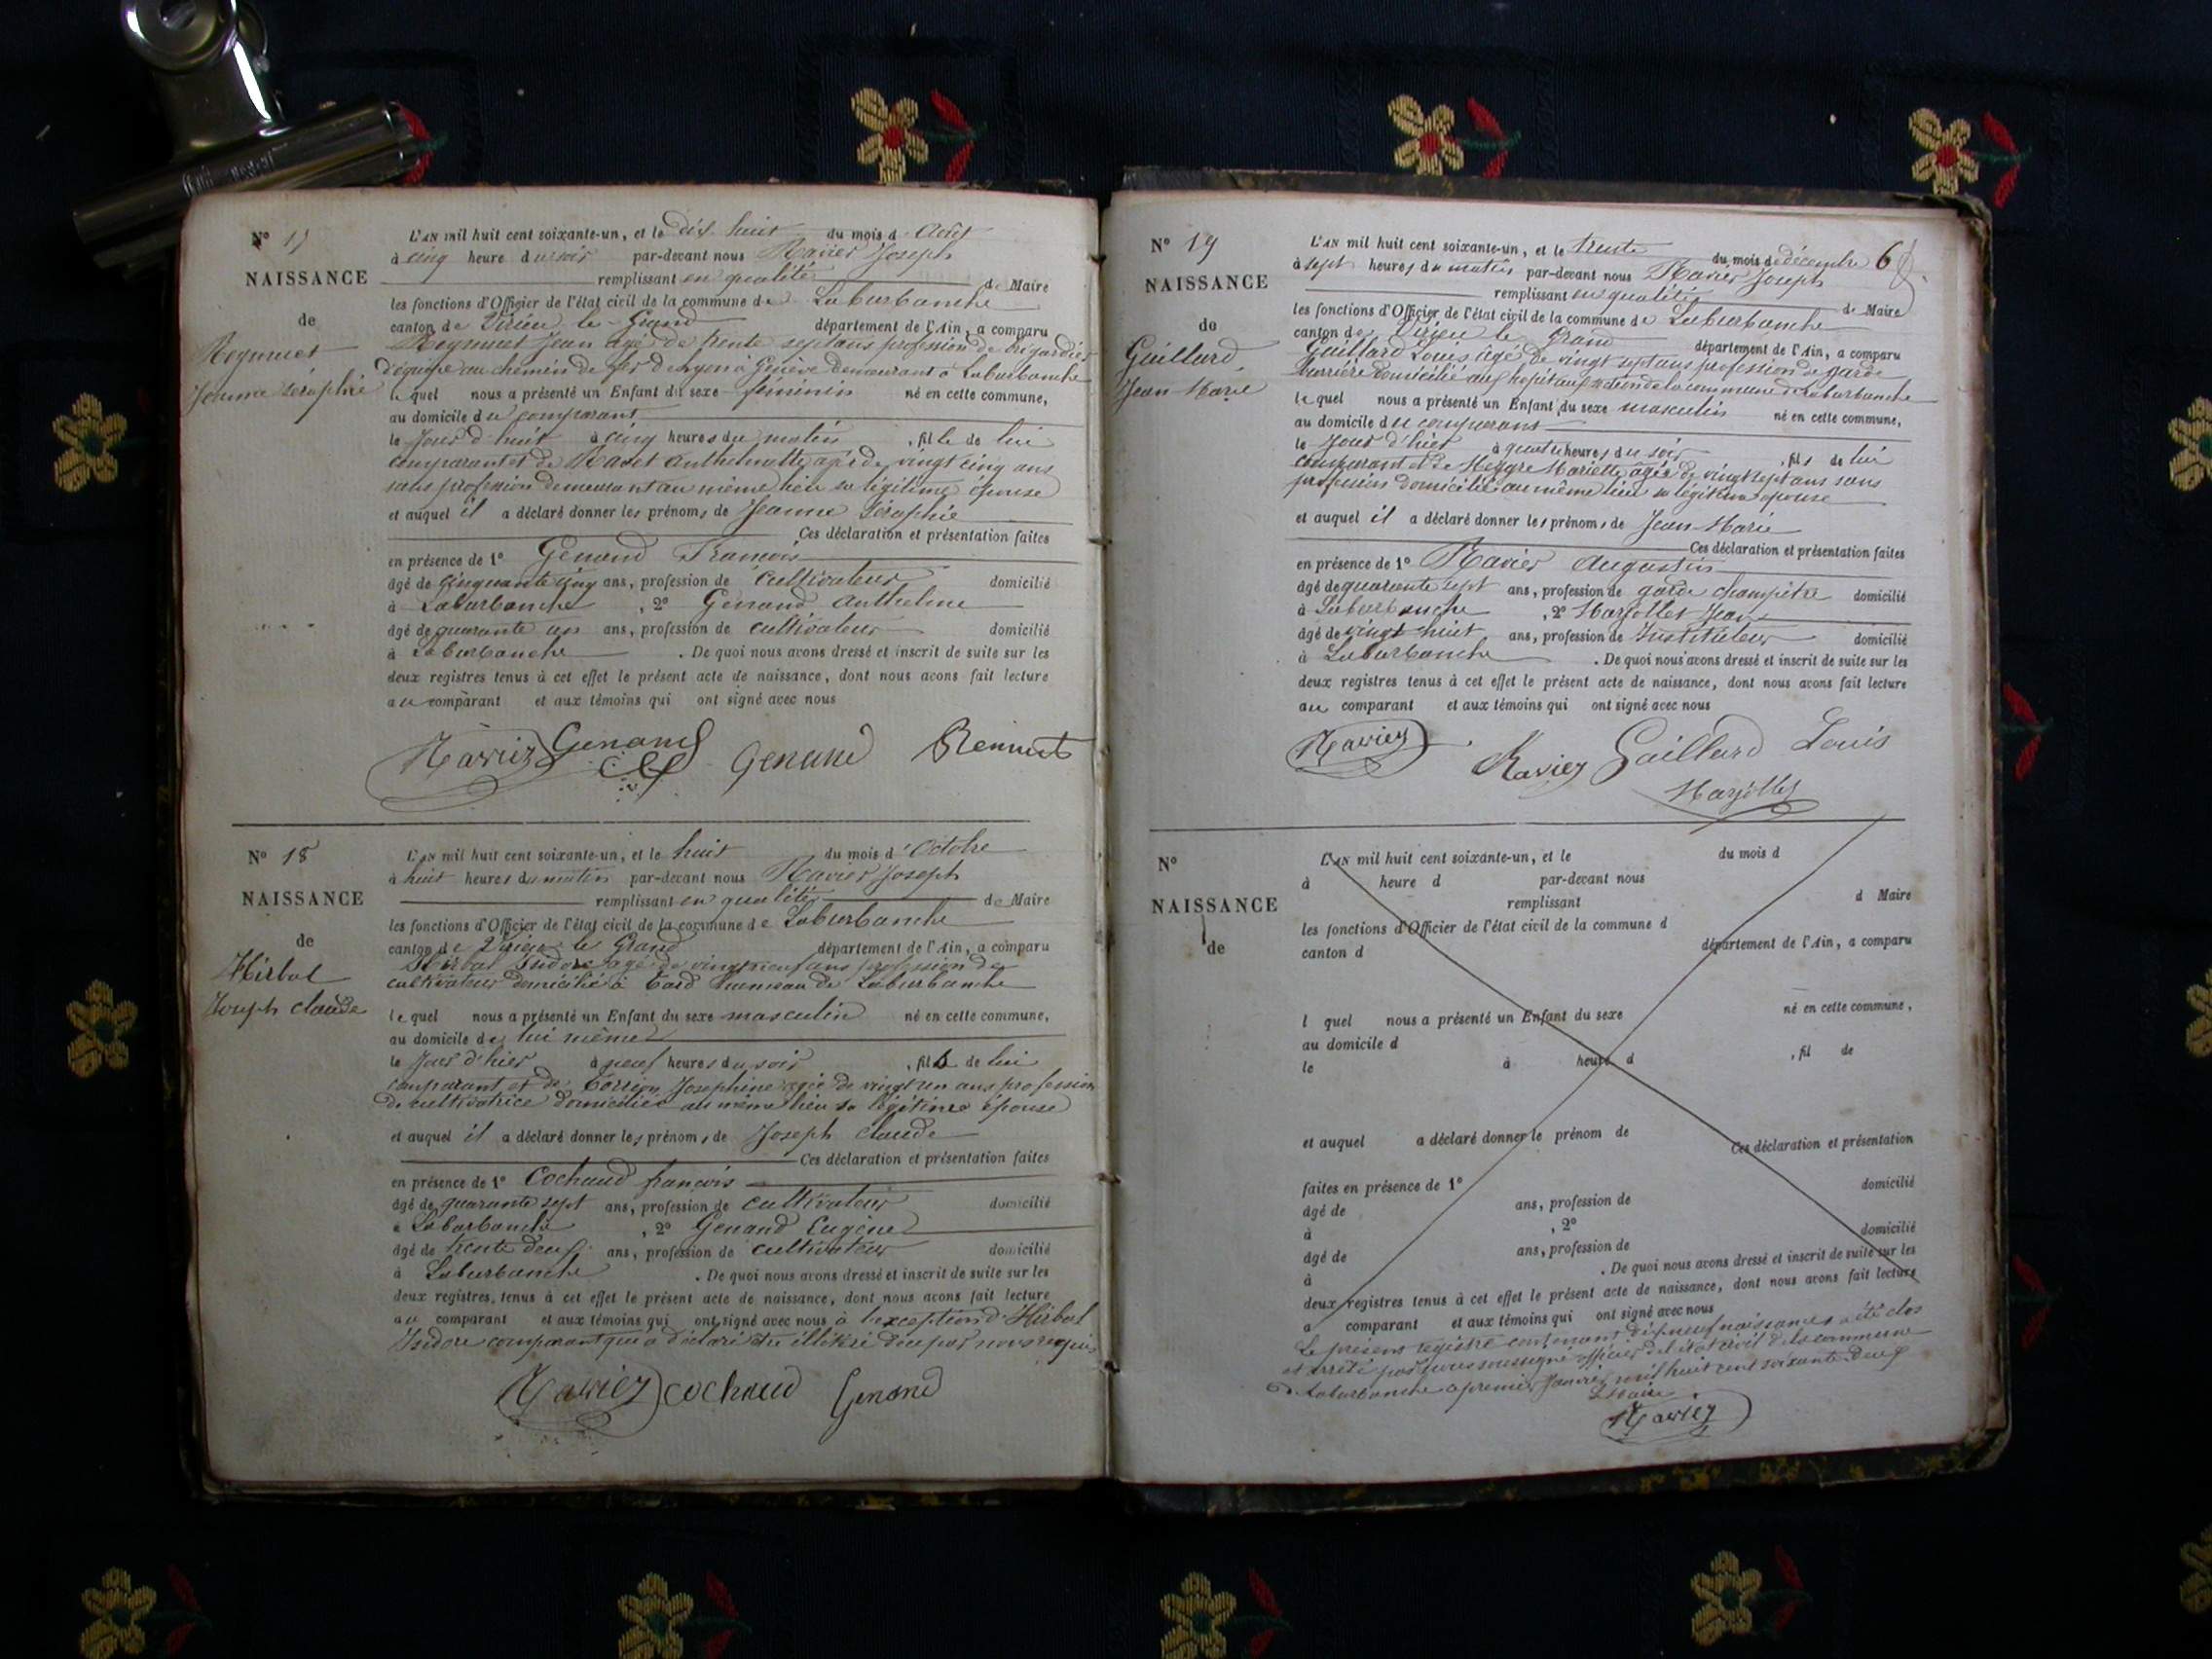 N° 17
NAISSANCE
de
Reymuet
Jeanne séraphie
L'AN mil huit cent soixante-un, et le dix huit du mois d'Août
à cinq heure du soir par-devant nous Ravier Joseph
remplissant en qualité de Maire
les fonctions d'Officier de l'état civil de la commune de Laburbanche
canton de Virieu le Grand département de l'Ain, a comparu
Reymuet Jean agé de trente sept ans profession de brigardier
d'équipe au chemin de fer de Lyon à Genève demeurant à Laburbanche
lequel nous a présenté un Enfant du sexe féminin né en cette commune,
au domicile du comparant
le Jour d'huit à cinq heures du matin, fille de lui
comparant et de Ravet Anthelmette agée de vingt cinq ans
sans profession demeurant au même lieu sa légitime épouse
et auquel il a déclaré donner les prénoms de Jeanne Séraphie
Ces déclaration et présentation faites
en présence de 1° Genand François
âgé de cinquante cinq ans, profession de cultivateur domicilié
à Laburbanche, 2° Genand Anthelme
âgé de quarante un ans, profession de cultivateur domicilié
à Laburbanche. De quoi nous avons dressé et inscrit de suite sur les
deux registres tenus à cet effet le présent acte de naissance, dont nous avons fait lecture
au comparant et aux témoins qui ont signé avec nous
Ravier Genand Genand Remuet
N° 18
NAISSANCE
de
Hirbal
Joseph Claude
L'AN mil huit cent soixante-un, et le huit du mois d'Octobre
à huit heures du matin par-devant nous Ravier Joseph
remplissant en qualité de Maire
les fonctions d'Officier de l'état civil de la commune de Laburbanche
canton de Virieu le Grand département de l'Ain, a comparu
Hirbal Isidore agé de vingt neuf ans profession de
cultivateur domicilié à Tard hameau de Laburbanche
lequel nous a présenté un Enfant du sexe masculin né en cette commune,
au domicile de lui même
le Jour d'hier à neuf heures du soir, fils de lui
comparant et de Josephine agée de vingt un ans profession
de cultivatrice domiciliée au même lieu sa légitime épouse
et auquel il a déclaré donner les prénoms de Joseph Claude
Ces déclaration et présentation faites
en présence de 1° Cochaud françois
âgé de quarante sept ans, profession de cultivateur domicilié
à Laburbanche, 2° Genand Eugène
âgé de trente deux ans, profession de cultivateur domicilié
à Laburbanche. De quoi nous avons dressé et inscrit de suite sur les
deux registres, tenus à cet effet le présent acte de naissance, dont nous avons fait lecture
au comparant et aux témoins qui ont signé avec nous à l'exception d'Hirbal
Isidore comparant qui a déclaré être illétéré de ce par nous requis
Ravier Cochaud Genand
6
N° 19
NAISSANCE
de
Guillard
Jean Marie
L'AN mil huit cent soixante-un, et le trente du mois de décembre
à sept heures du matin par-devant nous Ravier Joseph
remplissant en qualité de Maire
les fonctions d'Officier de l'état civil de la commune de Laburbanche
canton de Virieu le Grand département de l'Ain, a comparu
Guillard Louis agé de vingt sept ans profession de garde
barrière domicilié aux hopitaux section de la commune de Laburbanche
lequel nous a présenté un Enfant du sexe masculin né en cette commune,
au domicile du comparant
le Jour d'hier à quatre heures du soir, fils de lui
comparant et de Meygre Mariette agée de vingt sept ans sans
profession domiciliée au même lieu sa légitime épouse
et auquel il a déclaré donner les prénoms de Jean-Marie
Ces déclaration et présentation faites
en présence de 1° Ravier Augustin
âgé de quarante sept ans, profession de garde champêtre domicilié
à Laburbanche, 2° Marjollet Jean
âgé de vingt huit ans, profession de Instituteur domicilié
à Laburbanche. De quoi nous avons dressé et inscrit de suite sur les
deux registres tenus à cet effet le présent acte de naissance, dont nous avons fait lecture
au comparant et aux témoins qui ont signé avec nous
Ravier Ravier Gaillard Louis
Marjollet
N°
NAISSANCE
de
L'AN mil huit cent soixante-un, et le du mois d
à heure d par-devant nous
remplissant d Maire
les fonctions d'Officier de l'état civil de la commune d
canton d département de l'Ain, a comparu
l quel nous a présenté un Enfant du sexe né en cette commune,
au domicile d
le à heure d, fil de
et auquel a déclaré donner le prénom de
Ces déclaration et présentation
faites en présence de 1°
âgé de ans, profession de domicilié
à, 2°
âgé de ans, profession de domicilié
à. De quoi nous avons dressé et inscrit de suite sur les
deux registres tenus à cet effet le présent acte de naissance, dont nous avons fait lecture
a comparant et aux témoins qui ont signé avec nous
Le présent registre contenant dix neuf naissances a été clos
et arrêté par nous soussigné officier de l'état civil de la commune
de Laburbanche le premier Janvier mil huit cent soixante-deux
Le Maire
Ravier